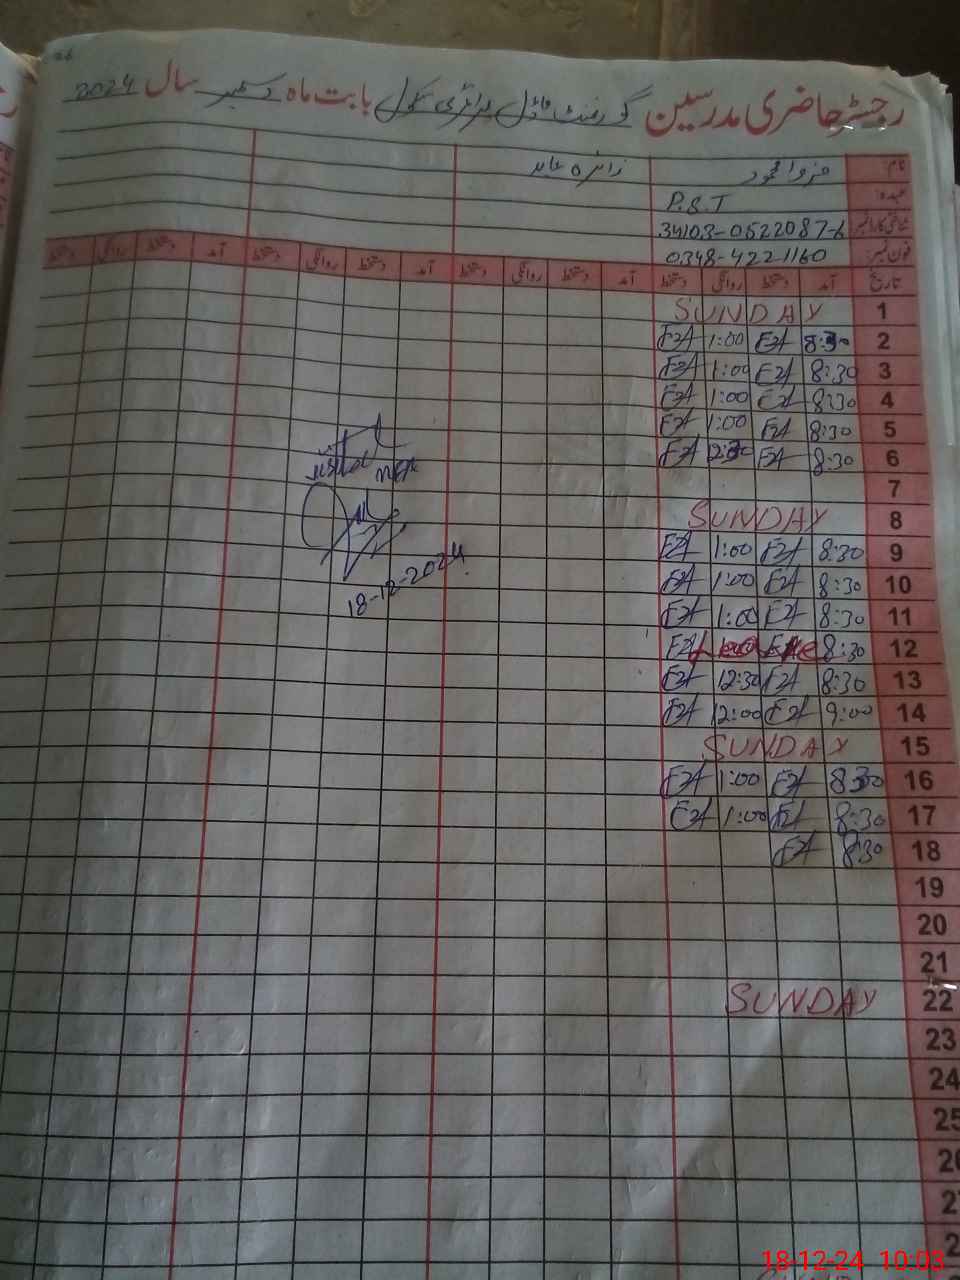 رجسٹر حاضری مدرسین گورنمنٹ ماڈل پرائمری سکول بابت ماہ دسمبر سال 2024
نام:
زائرہ عابد
عہدہ: P.S.T
شناختی کارڈ نمبر 34103-0522087-6
فون نمبر: 0348-4221160
تاریخ آمد دستخط روانگی دستخط آمد دستخط روانگی دستخط آمد دستخط روانگی دستخط آمد دستخط روانگی دستخط
1 SUNDAY
2 8:30 1:00
3 8:30 1:00
4 8:30 1:00
5 8:30 1:00
6 8:30 12:30
7
8 SUNDAY
9 8:30 1:00
10 8:30 1:00
11 8:30 1:00
12 8:30 Leave
13 8:30 12:30
14 9:00 12:00
15 SUNDAY
16 8:30 1:00
17 8:30 1:00
18 8:30
19
20
21
22 SUNDAY
23
24
25
26
27
2
18-12-2024
18-12-24 10:03